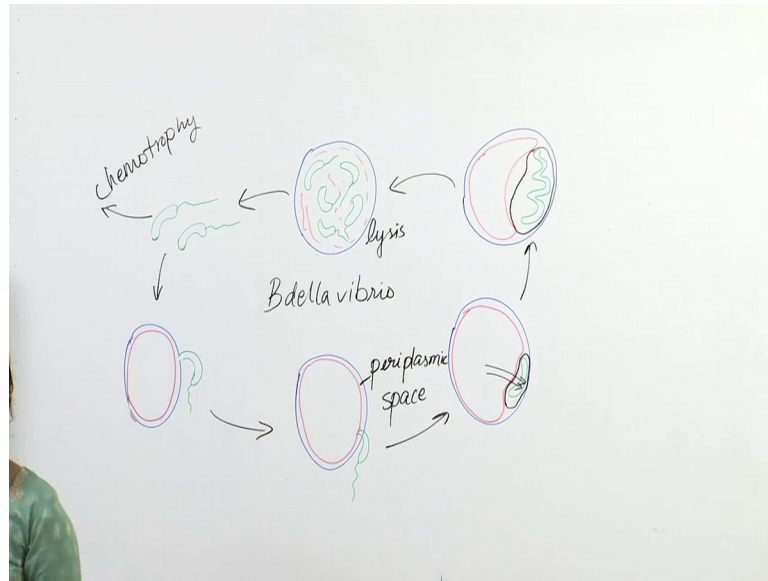 chemotrophy
lysis
Bdellavibrio
periplasmic
space